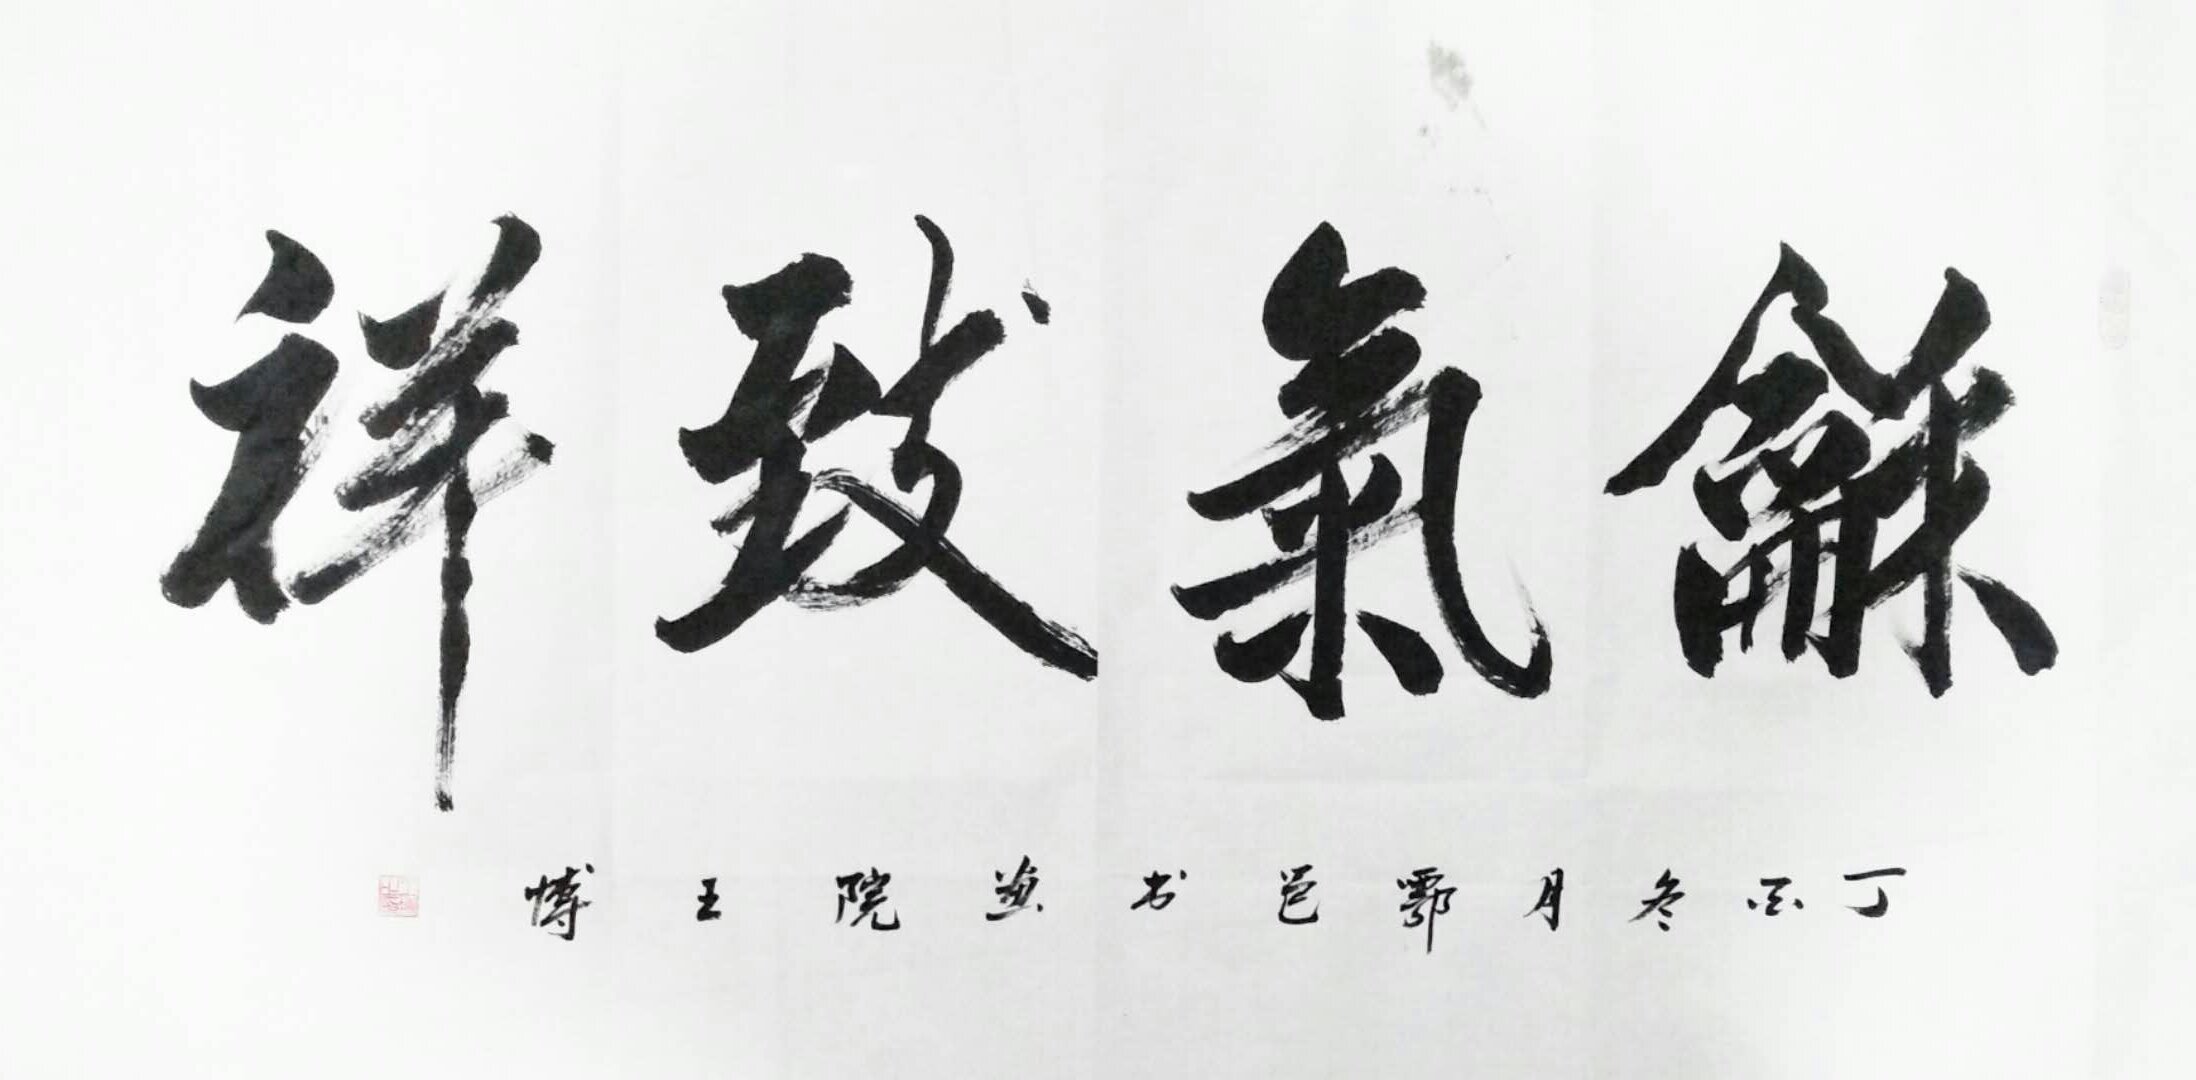 龢氣致祥
丁酉冬月鄠邑书画院王博